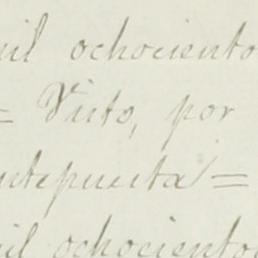 mil ochociento
= Visto, por
antepuesta =
mil ochociento